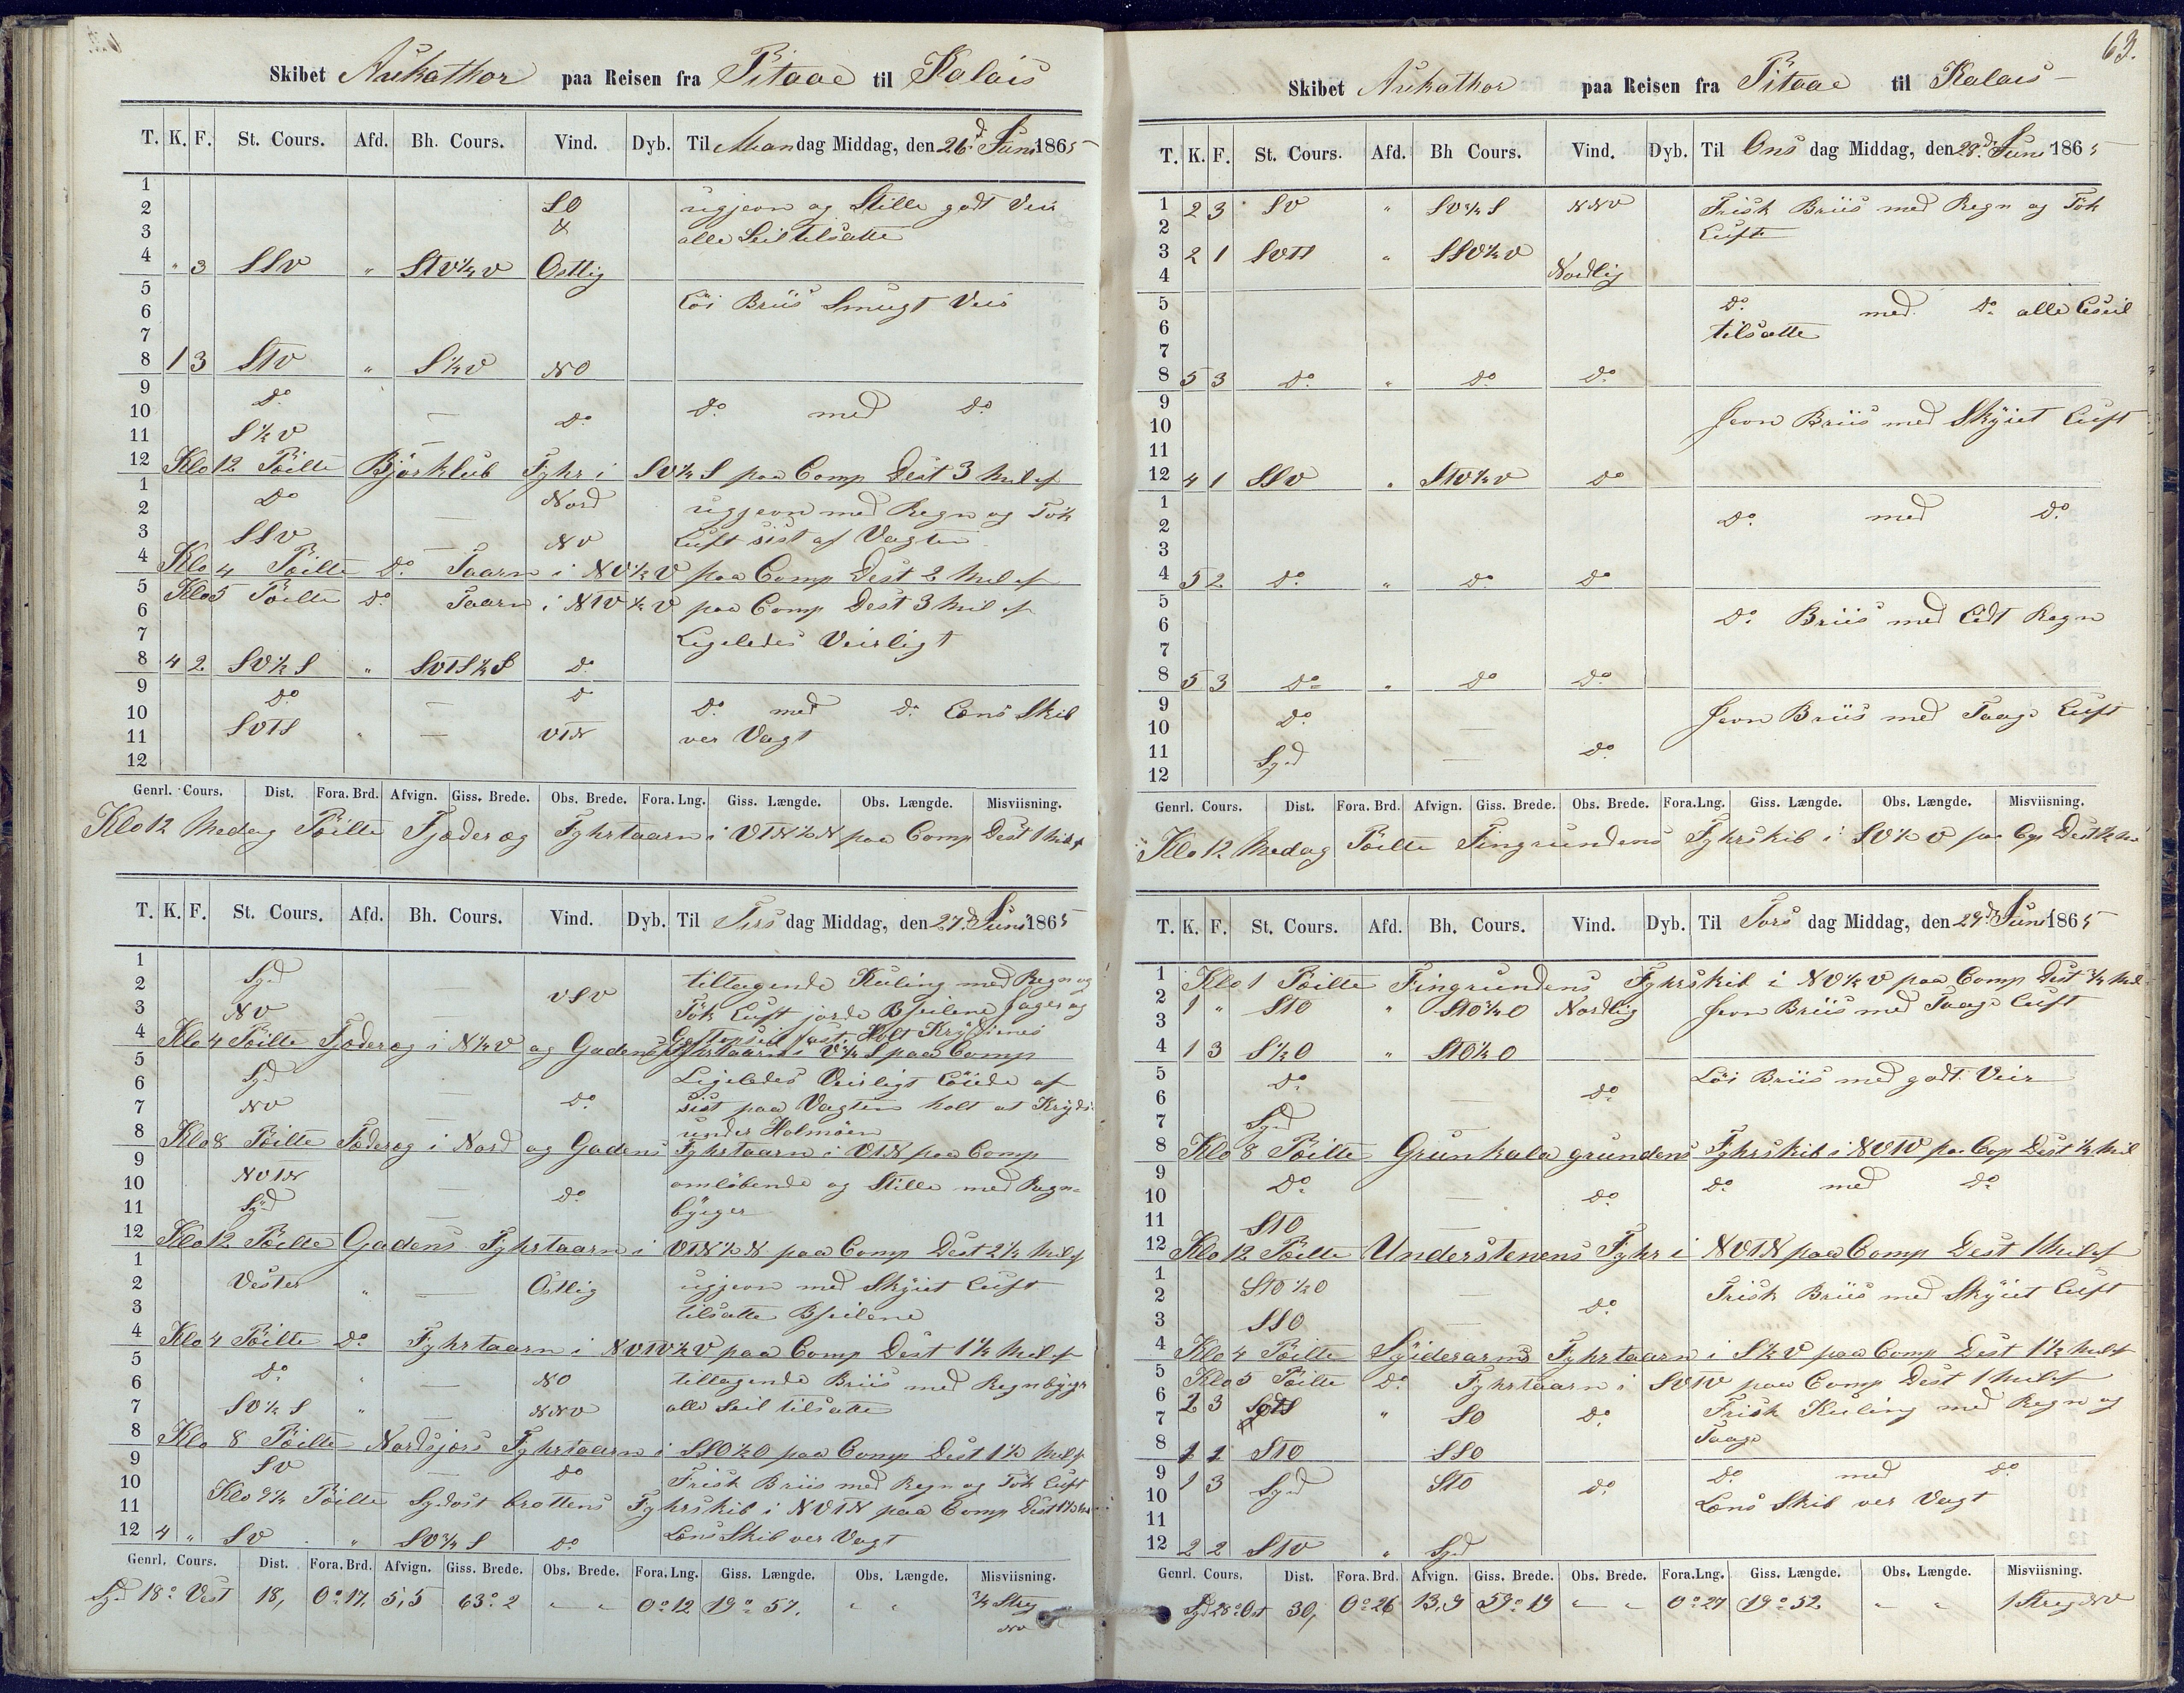 Skibet Aukathor paa Reisen fra Pitaae til Kalais
T. K. F. St. Cours. Afd. Bh. Cours. Vind. Dyb. Til Mandag Middag, den 26d Juni 1865
1
2 SO ugjevn og Stille godt Veir
3 & alle Seil tilsatte
4 " 3 SSV " StV½V Ostlig
5
6 Löi Briis Smugt Veir
7
8 1 3 StV " S½V NO
9 Do
10 — Do Do med Do
11 S½V —
12 Klo 12 Pöilte Bjorklub Fyhr i SV½S paa Comp Dest 3 Mil af
1
2 Do — Nord ugjevn med Regn og Tök
3 SSV — NV Luft sist af Vagten
4 Klo 4 Pöilte Do Taarn i NV½V paa Comp Dest 2 Mil af
5 Klo 5 Pöilte Do Taarn i NTV½V paa Comp Dest 3 Mil af
6
7 Ligeledes Veirligt
8 4 2 SV½S " SVTS½S Do
9 Do — Do
10 Do med Do Lens Skib
11 SVTS — VTN ver Vagt
12
Genrl. Cours. Dist. Fora. Brd. Afvign. Giss. Brede. Obs. Brede. Fora. Lng. Giss. Længde. Obs. Længde. Misviisning.
Klo 12 Medag Pöilte Fjæderæg Fyhrtaarn i VTN½N paa Comp Dest 1 Mil af
T. K. F. St. Cours. Afd. Bh. Cours. Vind. Dyb. Til Tirsdag Middag, den 27d Juni 1865
1
2 Syd — VSV tiltagende Kuling med Regn og
3 NV — Tök Luft jorde Bseilene Jager og
Gaftopseil fast. Holt Krydsenes
4 Klo 4 Pöilte Fjæderæg i N½V og Gadens Fyhrtaarn i V¾S paa Comp
5
6 Syd — Ligeledes Veirligt Löiede af
7 NV — Do sist paa Vagten holt at Kryds
under Holmöen
8 Klo 8 Pöilte Fæderæg i Nord og Gadens Fyhrtaarn i VTN paa Comp
9
10 NVTN omlöbende og Stille med Regn-
11 Syd — Do byger
12 Klo 12 Pöilte Gadens Fyhrtaarn i VTN½N paa Comp Dest 2½ Mil af
1
2 Vester " — Ostlig ugjevn med Skyiet Luft
3 tilsatte Bseilene
4 Klo 4 Pöilte Do Fyhrtaarn i NVTV½V paa Comp Dest 1½ Mil af
5
6 Do " — NO tiltagende Briis med Regnbyger
7 SV½S " — NNV alle Seil tilsatte
8 Klo 8 Pöilte Nordsjörs Fyhrtaarn i SSO½O paa Comp Dest 1½ Mil af
9 SV — Do
10 Frisk Briis med Regn og Tök Luft
11 Klo 9¼ Pöilte Sydost brottens Fyhrskib i NVTN paa Comp Dest 1½ Mil
12 4 " SV " SV¾S Do Lens Skib ver Vagt
Genrl. Cours. Dist. Fora. Brd. Afvign. Giss. Brede. Obs. Brede. Fora. Lng. Giss. Længde. Obs. Længde. Misviisning.
Syd 18° Vest 18, 0° 17, 5,5 63° 2 " " 0° 12 19° 57, " " ¾ Streg
NV
63.
Skibet Aukathor paa Reisen fra Pitaae til Kalais
T. K. F. St. Cours. Afd. Bh Cours. Vind. Dyb. Til Onsdag Middag, den 28d Juni 1865
1 2 3 SV " SV¾S NNV Frisk Briis med Regn og Tök
2 Luft
3 2 1 SVTS " SSV½V
4 Nordlig
5 Do med Do alle Leseil
6 tilsatte
7
8 5 3 Do " Do Do
9
10 Jevn Briis med Skyiet Luft
11
12 4 1 SSV " StV½V Do
1
2 Do med Do
3
4 5 2 Do " Do Do
5
6 Do Briis med Lidt Regn
7
8 5 3 Do " Do Do
9
10 Do — Jevn Briis med Taage Luft
11 Syd — Do
12
Genrl. Cours. Dist. Fora. Brd. Afvign. Giss. Brede. Obs. Brede. Fora. Lng. Giss. Længde. Obs. Længde. Misviisning.
Klo 12 Medag Pöilte Fingrundens Fyhrskib i SV½V paa Cop Dest ½ Mil
T. K. F. St. Cours. Afd. Bh. Cours. Vind. Dyb. Til Torsdag Middag, den 29d Juni 1865
1 Klo 1 Pöilte Fingrundens Fyhrskib i NV½V paa Comp Dest ¾ Mil
2 1 " StO " StO¾O Nordlig Jevn Briis med Taage Luft
3
4 1 3 S½O " StO½O
5 Do Löi Briis med godt Veir
6 — Do
7 Syd
8 Klo 8 Pöilte Grunkala grundens Fyhrskib i NVTV paa Cop Dest ½ Mil
9
10 Do — Do Do med Do
11 StO —
12 Klo 12 Pöilte Understenens Fyhr i NVTN paa Comp Dest 1 Mil af
1
2 StO½O — Do Frisk Briis med Skyiet Luft
3 SSO
4 Klo 4 Pöilte Syiderarms Fyhrtaarn i S½V paa Comp Dest 1½ Mil af
5 Klo 5 Pöilte Do Fyhrtaarn i SVTV paa Comp Dest 1 Mil af
6 2 3 " SO Do Frisk Kuling med Regn og
7 Taage
8 1 1 StO SSO
9 1 3 Syd StO Do Do med Do
10 Lens Skib ver Vagt
11
12 2 2 StV " Syd
Genrl. Cours. Dist. Fora. Brd. Afvign. Giss. Brede. Obs. Brede. Fora. Lng. Giss. Længde. Obs. Længde. Misviisning.
Syd 28° Ost 30, 0° 26 13,9 59° 19 " " 0° 27 19° 52 " " 1 Streg NV